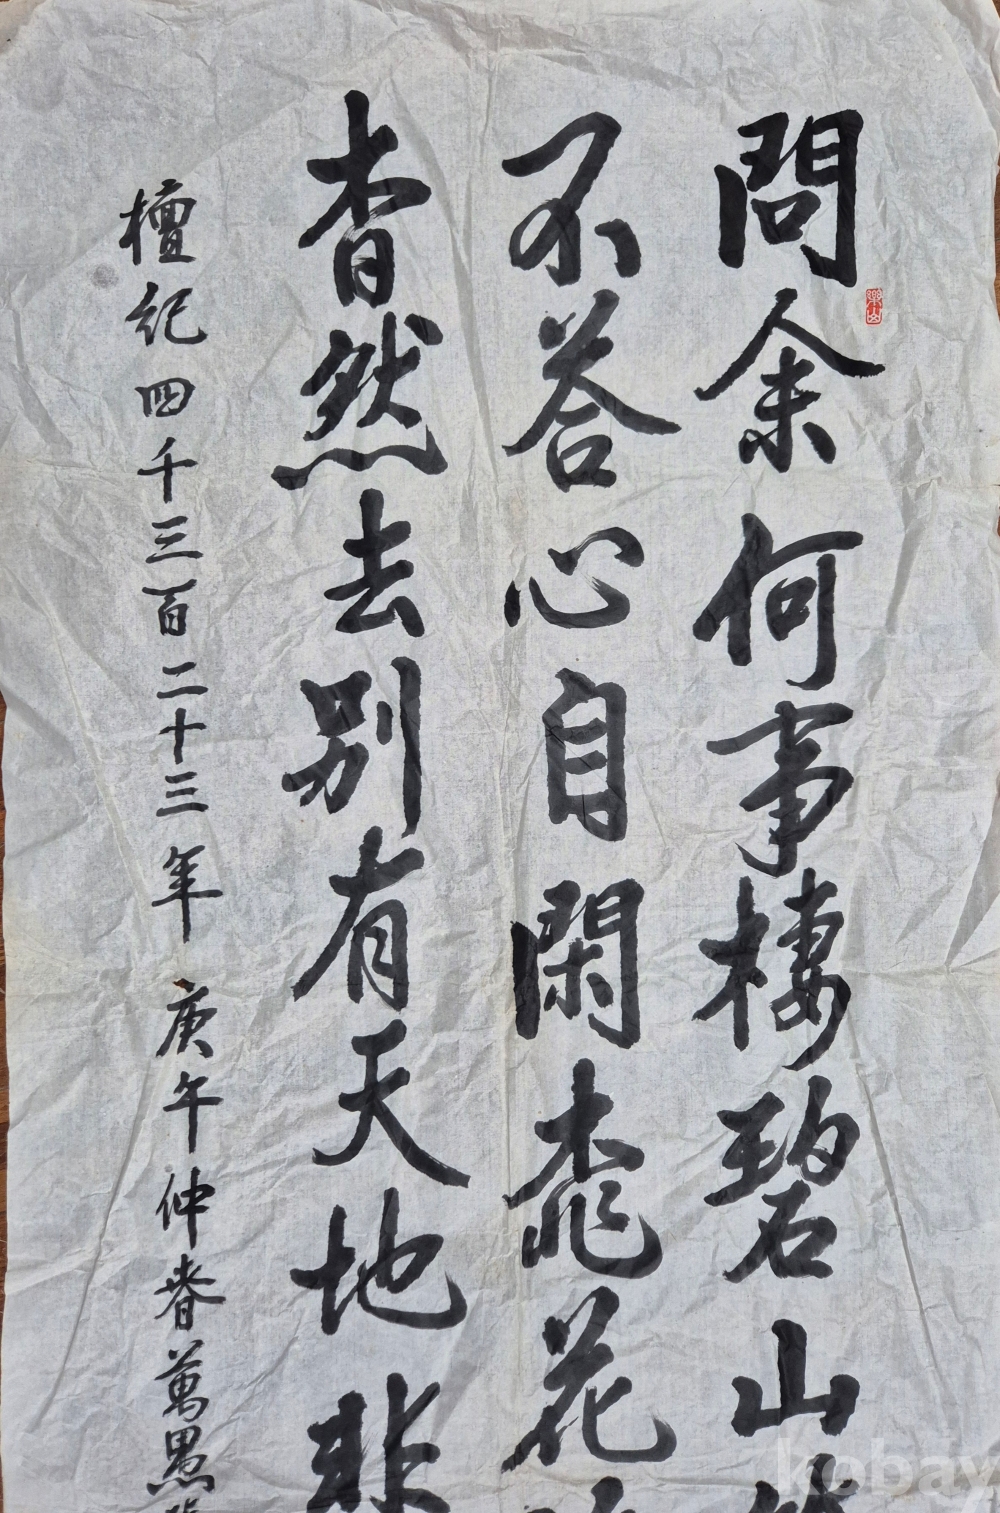 問余何事棲碧山
不答心自閑桃花
杳然去別有天地非
檀紀四千三百二十三年 庚午仲春萬愚
樂山
kobay